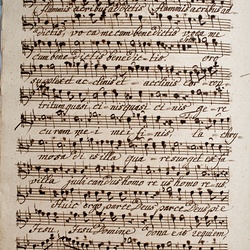 flammis acribus addictis flammis acribus ad
dictis, voca me cum benedictis voca me
cum bene dictis bene dic tis. oro
supplex et ac clinis et ac clinis cor con
tritum quasi ci nis quasi ci nis ge re
curam me i me i fi nis, la chry
mosa di es illa qua resurget ex fa
villa judicandus homo re us homo re us.
Huic ergo parce Deus parce Deus pi e
Jesu Jesu Domine dona eis requiem,